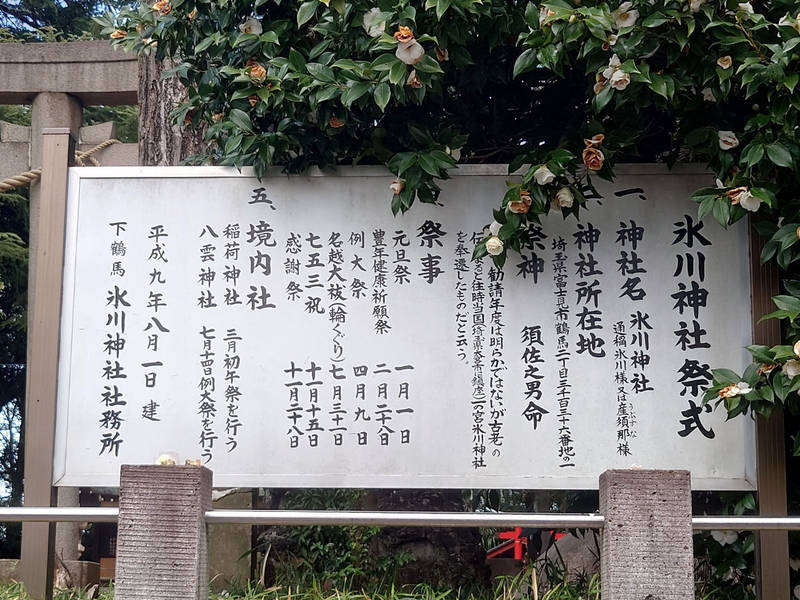 氷川神社祭式
一、神社名 氷川神社
通稱氷川様又は産須那様
うぶすな
神社所在地
埼玉県富士見市鶴馬二丁目三千百三十六番地の一
祭神 須佐之男命
勧請年度は明らかではないが古老の
ると往時当国(埼玉県大宮市鎮座)一の宮氷川神社
を奉遷したものだと云う。
祭事
元旦祭 一月一日
豊年健康祈願祭 二月二十八日
例大祭 四月九日
名越大祓(輪くぐり) 七月三十一日
七五三祝 十一月十五日
感謝祭 十一月二十八日
五、境内社
稲荷神社 三月初午祭を行う
八雲神社 七月十四日例大祭を行う
平成九年八月一日 建
下鶴馬 氷川神社社務所